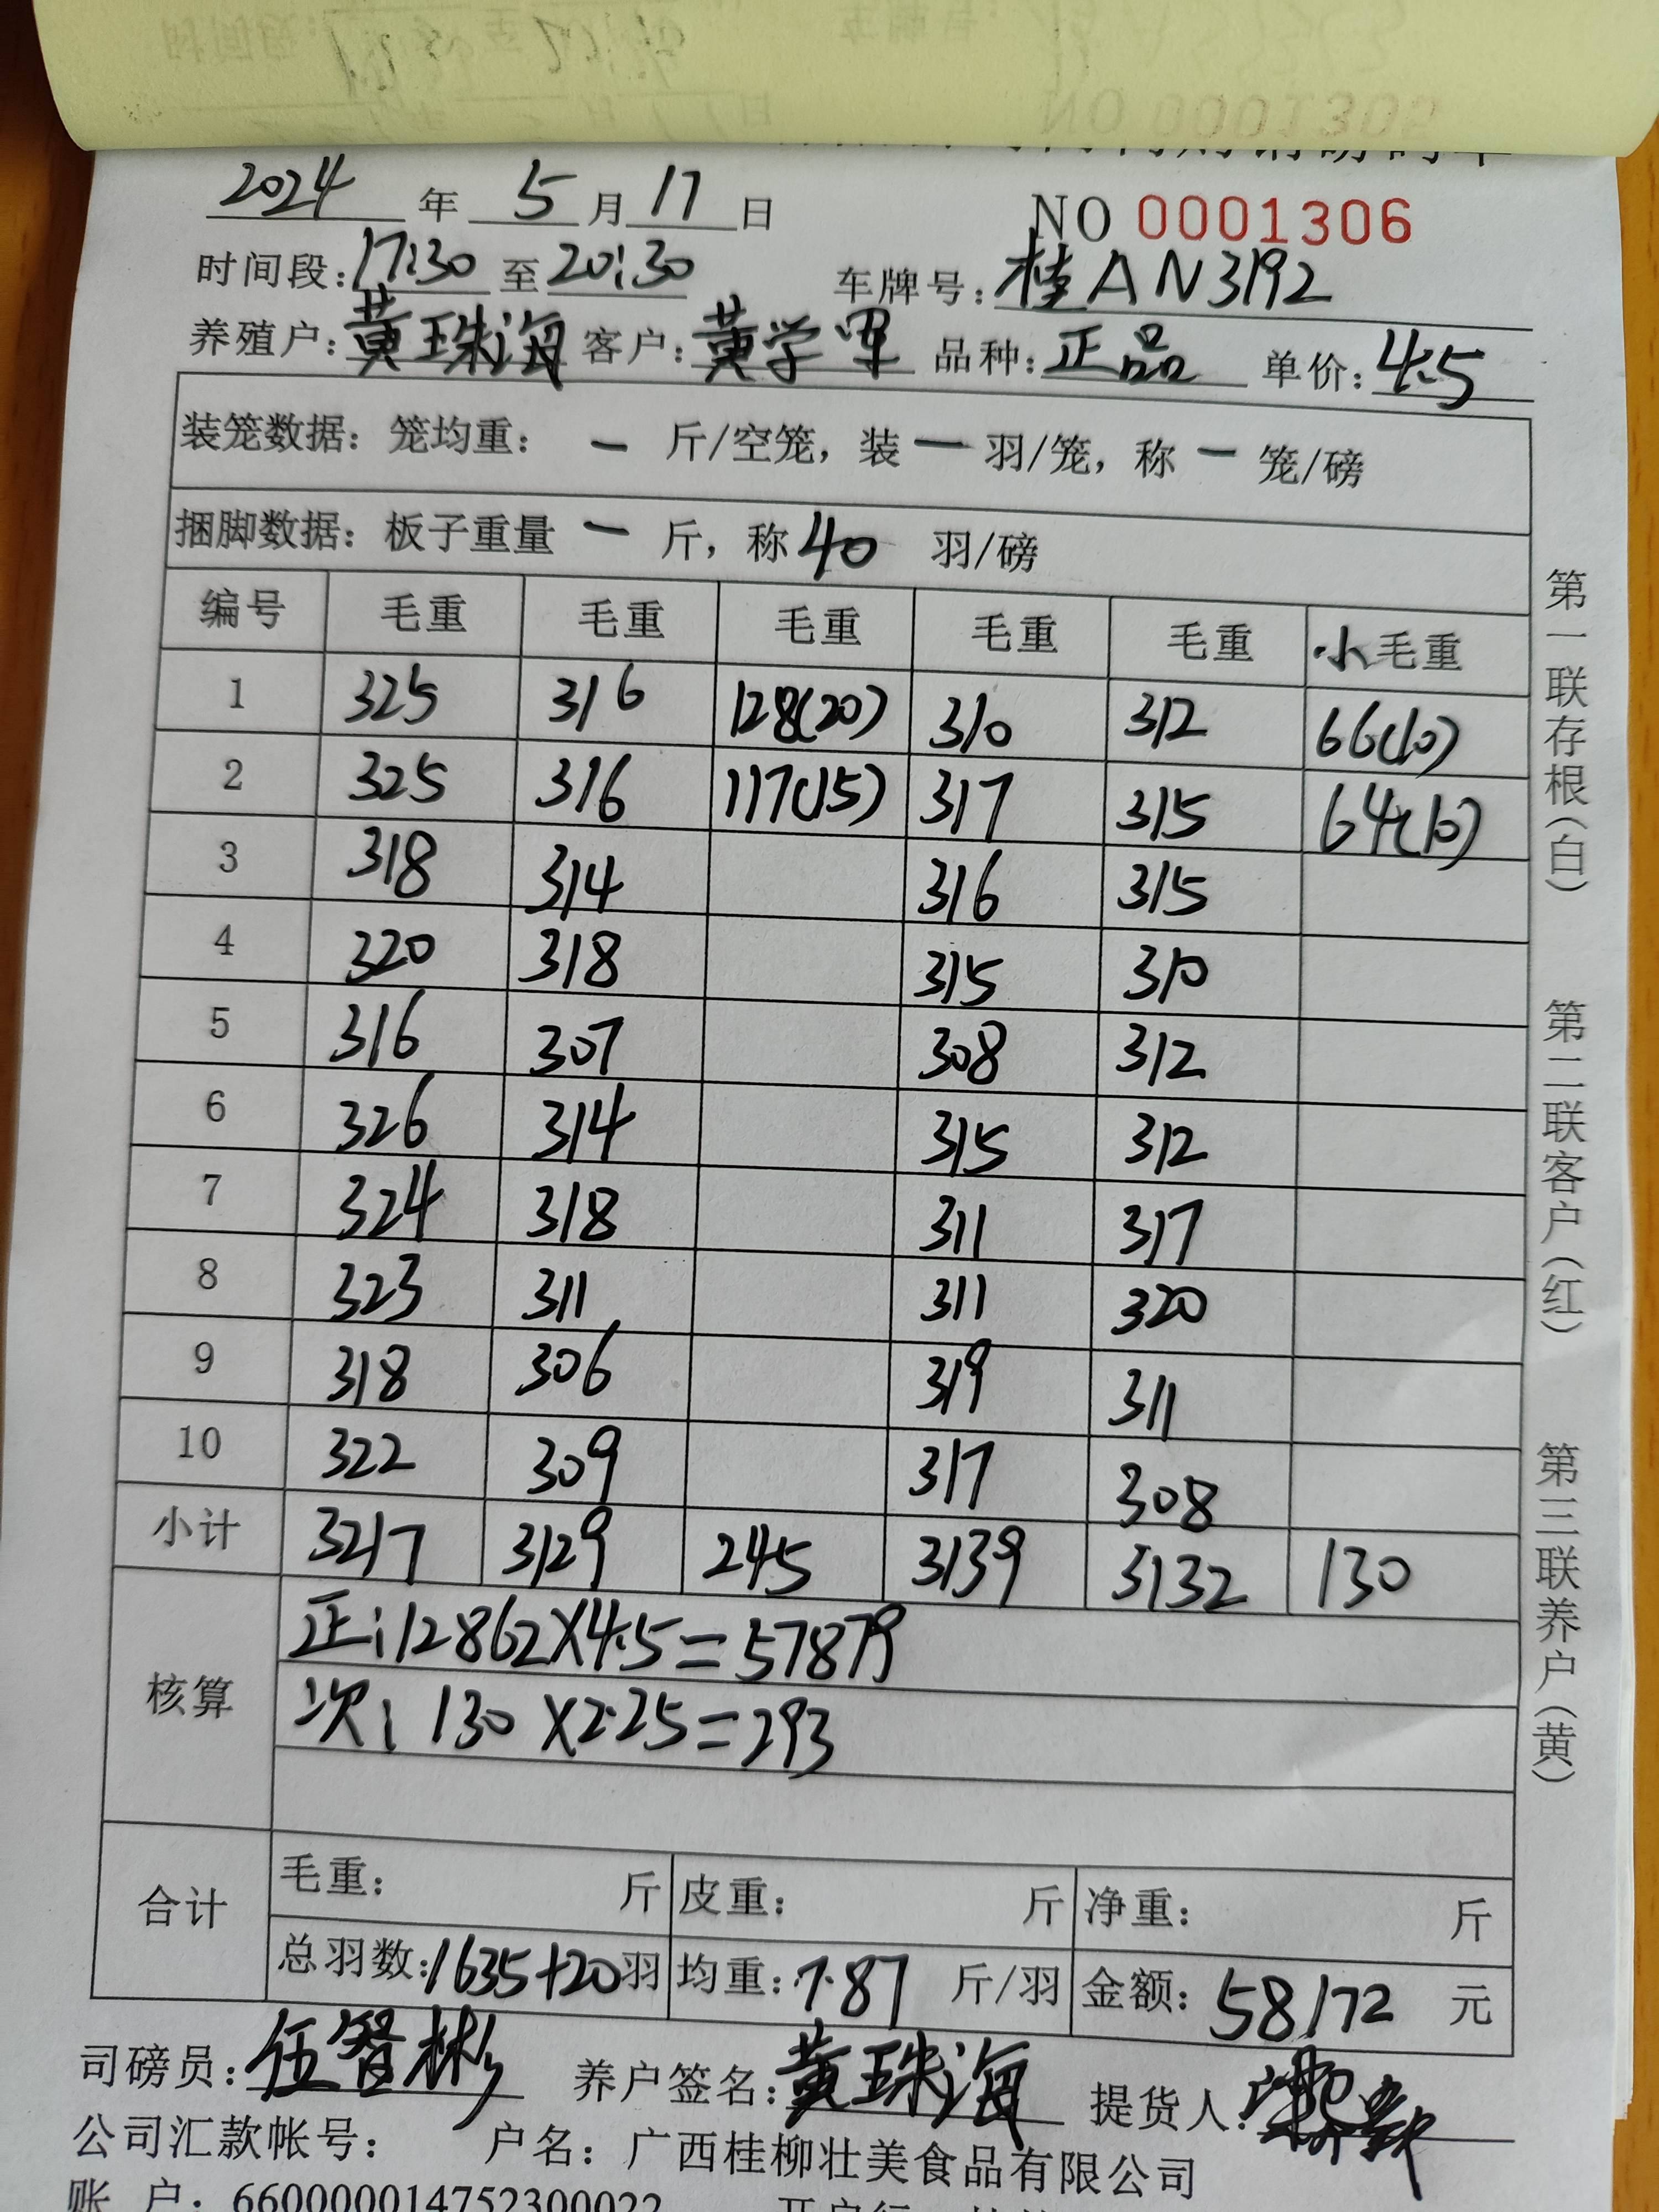 NO 0001305
2024 年 5 月 17 日
NO 0001306
时间段: 17:30 至 20:30 车牌号: 桂AN3192
养殖户: 黄珠海 客户: 黄学军 品种: 正品 单价: 4.5
装笼数据: 笼均重: — 斤/空笼, 装 — 羽/笼, 称 — 笼/磅
捆脚数据: 板子重量 — 斤, 称 40 羽/磅
编号 毛重 毛重 毛重 毛重 毛重 小毛重
1 325 316 128(20) 310 312 66(10)
2 325 316 117(15) 317 315 64(10)
3 318 314 316 315
4 320 318 315 310
5 316 307 308 312
6 326 314 315 312
7 324 318 311 317
8 323 311 311 320
9 318 306 319 311
10 322 309 317 308
小计 3217 3129 245 3139 3132 130
核算
正: 12862×4.5=57879
次: 130×2.25=293
合计
毛重: 斤 皮重: 斤 净重: 斤
总羽数: 1635+20 羽 均重: 7.87 斤/羽 金额: 58172 元
司磅员: 伍智彬 养户签名: 黄珠海 提货人:
公司汇款帐号: 户名: 广西桂柳壮美食品有限公司
账 户: 660000014752300022 开户行:
第一联存根(白) 第二联客户(红) 第三联养户(黄)